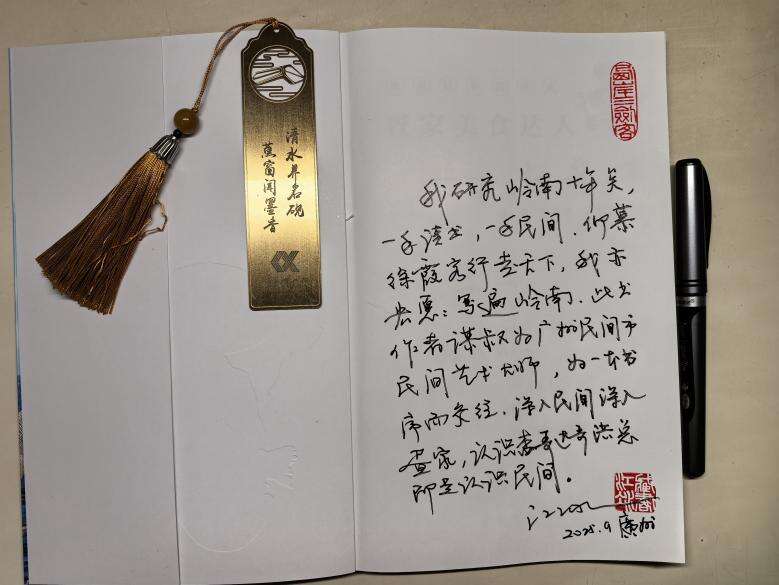 清水 名砚
蕉窗闻墨香
葛岸三劍客
我研究岭南十年矣，
一手读书，一手民间．仰慕
徐霞客行走天下，我亦
愿：写遍岭南．此书
作者谋叔为广州民间市
民间艺术大师，为一本书
序而交往．深入民间深入
疍家，认识 洪总
即是认识民间。
2025.9 廣州
藏書